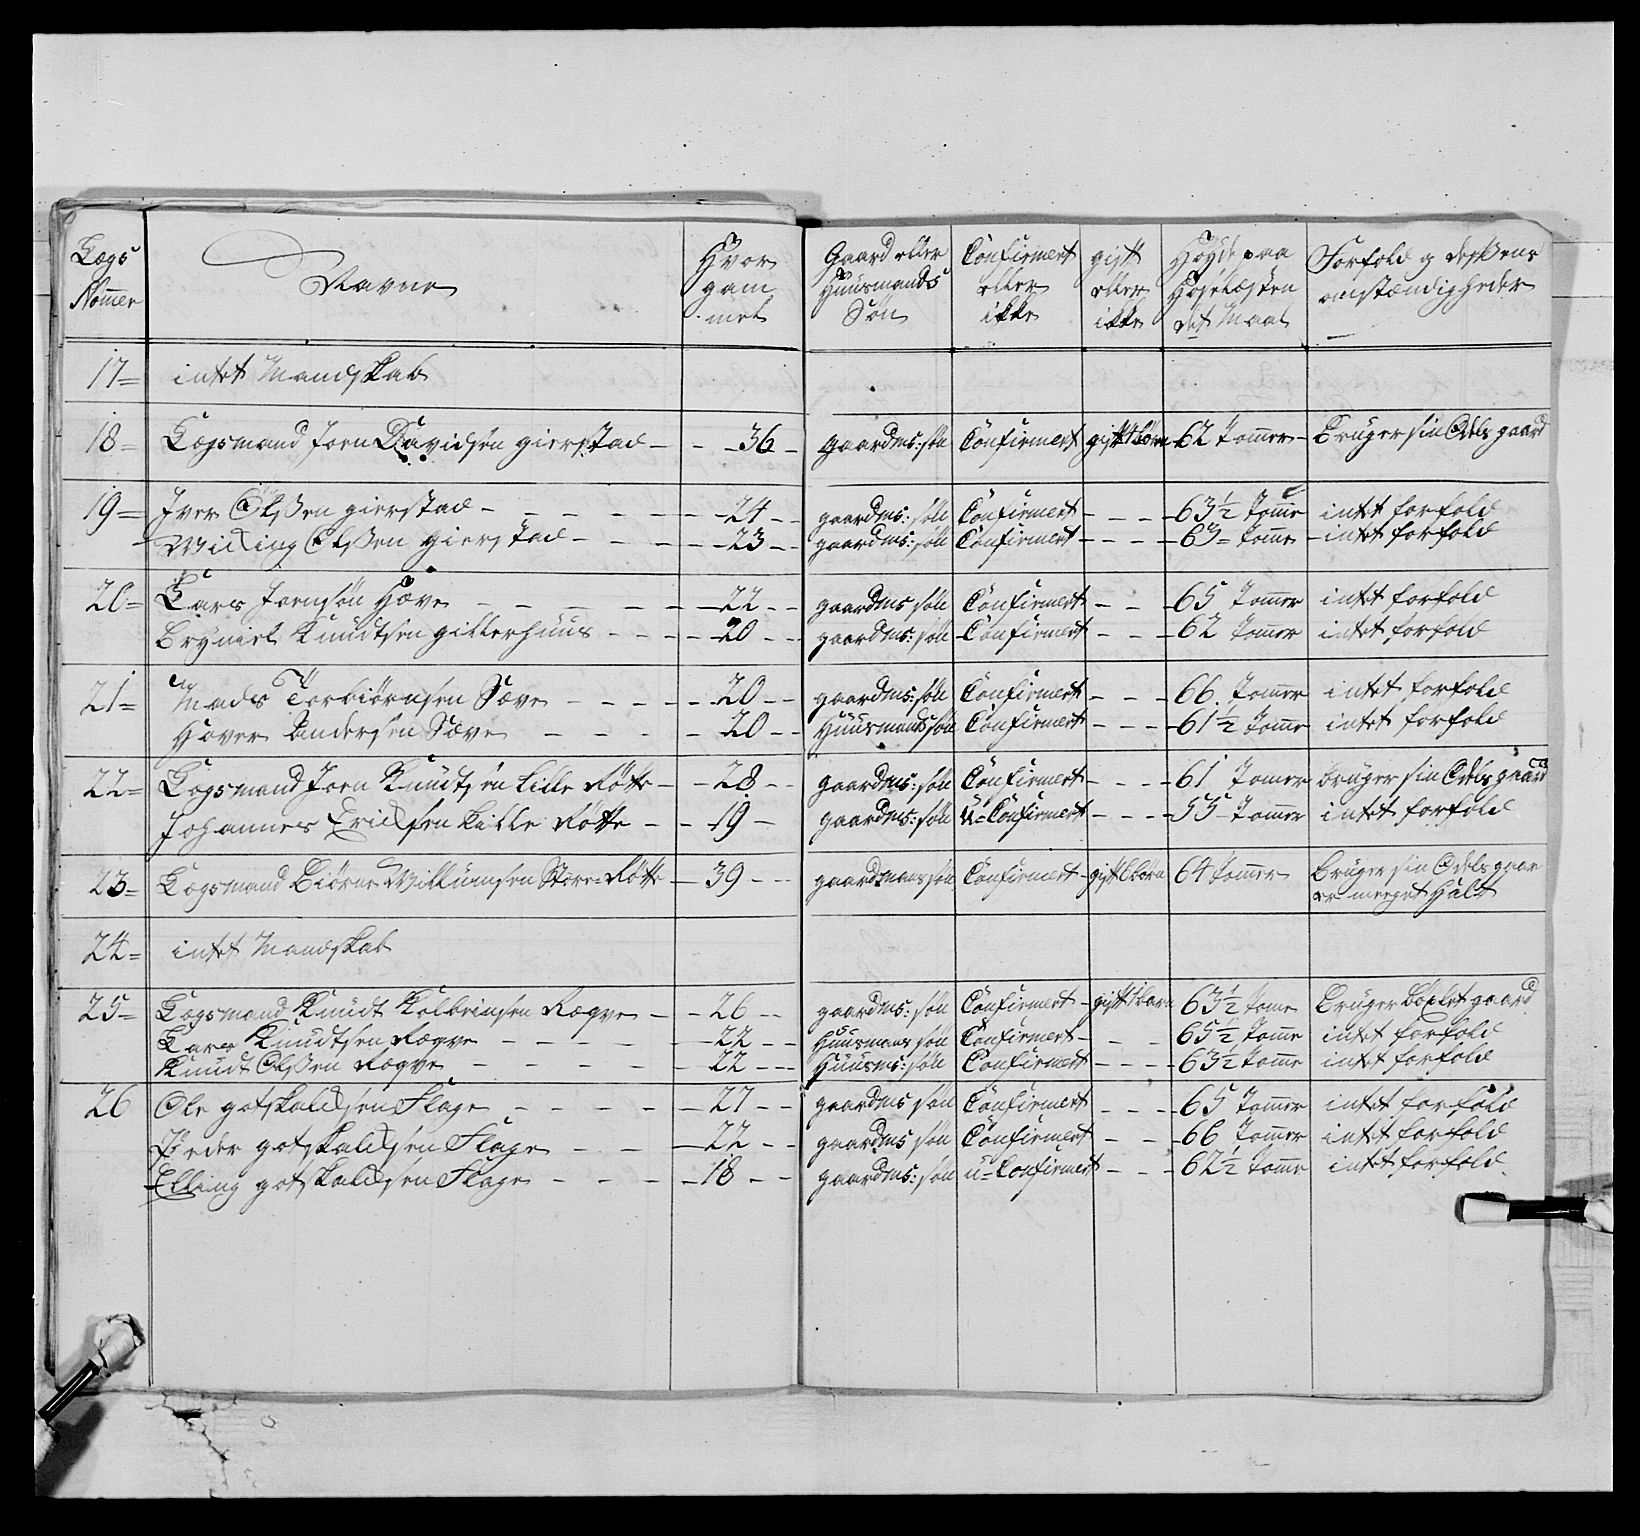 Lægs Nommer | Navne | Hvor gam mel | Gaard eller Huusmands Søn | Confirmert eller ikke | gift eller ikke | Høyde paa Hoselæsten det Maal | Forfold og dessens omstændigheder
17= intet Mandskab
18= Lægsmand Joen Davidsen gierstad - - 36 - gaardms: søn Confirmert gift 1 børn 62 Tommer - bruger sin Odels gaard
19= Iver Olssen gierstad - 24 - - gaardms: søn Confirmert - - - 63½ Tomme intet forfold
Willing Olssen gierstad - 23 - - gaardms: søn Confirmert - - - 63= Tomme - intet forfold
20= Lars Joensøn Hæve - 22 - - gaardms søn Confirmert - - 65 Tommer intet forfold
Bryniel Knudtsen gillerhuus - 20 - - gaardms: søn Confirmert - - - 62 Tommer intet forfold
21= Mads Torbiørnsen Sæve - 20 - - gaardms: søn Confirmert - - - 66 Tommer intet forfold
Haver Andersen Sæve - 20 - - Huusmands søn Confirmert - - - 61½ Tomme intet forfold
22= Lægsmand Joen Knudtsøn Lille Røtte - - 28 - - gaardms: søn Confirmert - - - 61 Tommer bruger sin Odels gaard
Johannes Erichsen Lille Røtte - - 19 - gaardms: søn U=Confirmert - - - 55 - Tommer intet forfold
23= Lægsmand Biørne Willumsen Store=Røtte - 39 - - gaardmans søn Confirmert - gift børn 64 Tommer bruger sin Odels gaar
er meeget Halt
24= intet Mandskab
25= Lægsmand Knudt Kolbeinsen Rægve - - 26 - - gaardms: søn Confirmert - gift 1 barn 63½ Tome bruger böxlet gaard
Lars Knudtsen Rægve - 22 - - Huusmans søn Confirmert - - - 65½ Tomme intet forfold
Knudt Olssen Rægve - 22 - - - Huusms: søn Confirmert - - - - 63½ Tomme intet forfold
26 Ole gotskalchsen Flage - 27 - - gaardms søn Confirmert - - - 65 Tommer intet forfold
Peder gotskalchsen Flage - 22 - - gaardms søn Confirmert - - 66 Tommer intet forfold
Elling gotskalchsen Flage - 18 - - gaardms: søn u=Confirmert - - - 62½ Tomme intet forfold